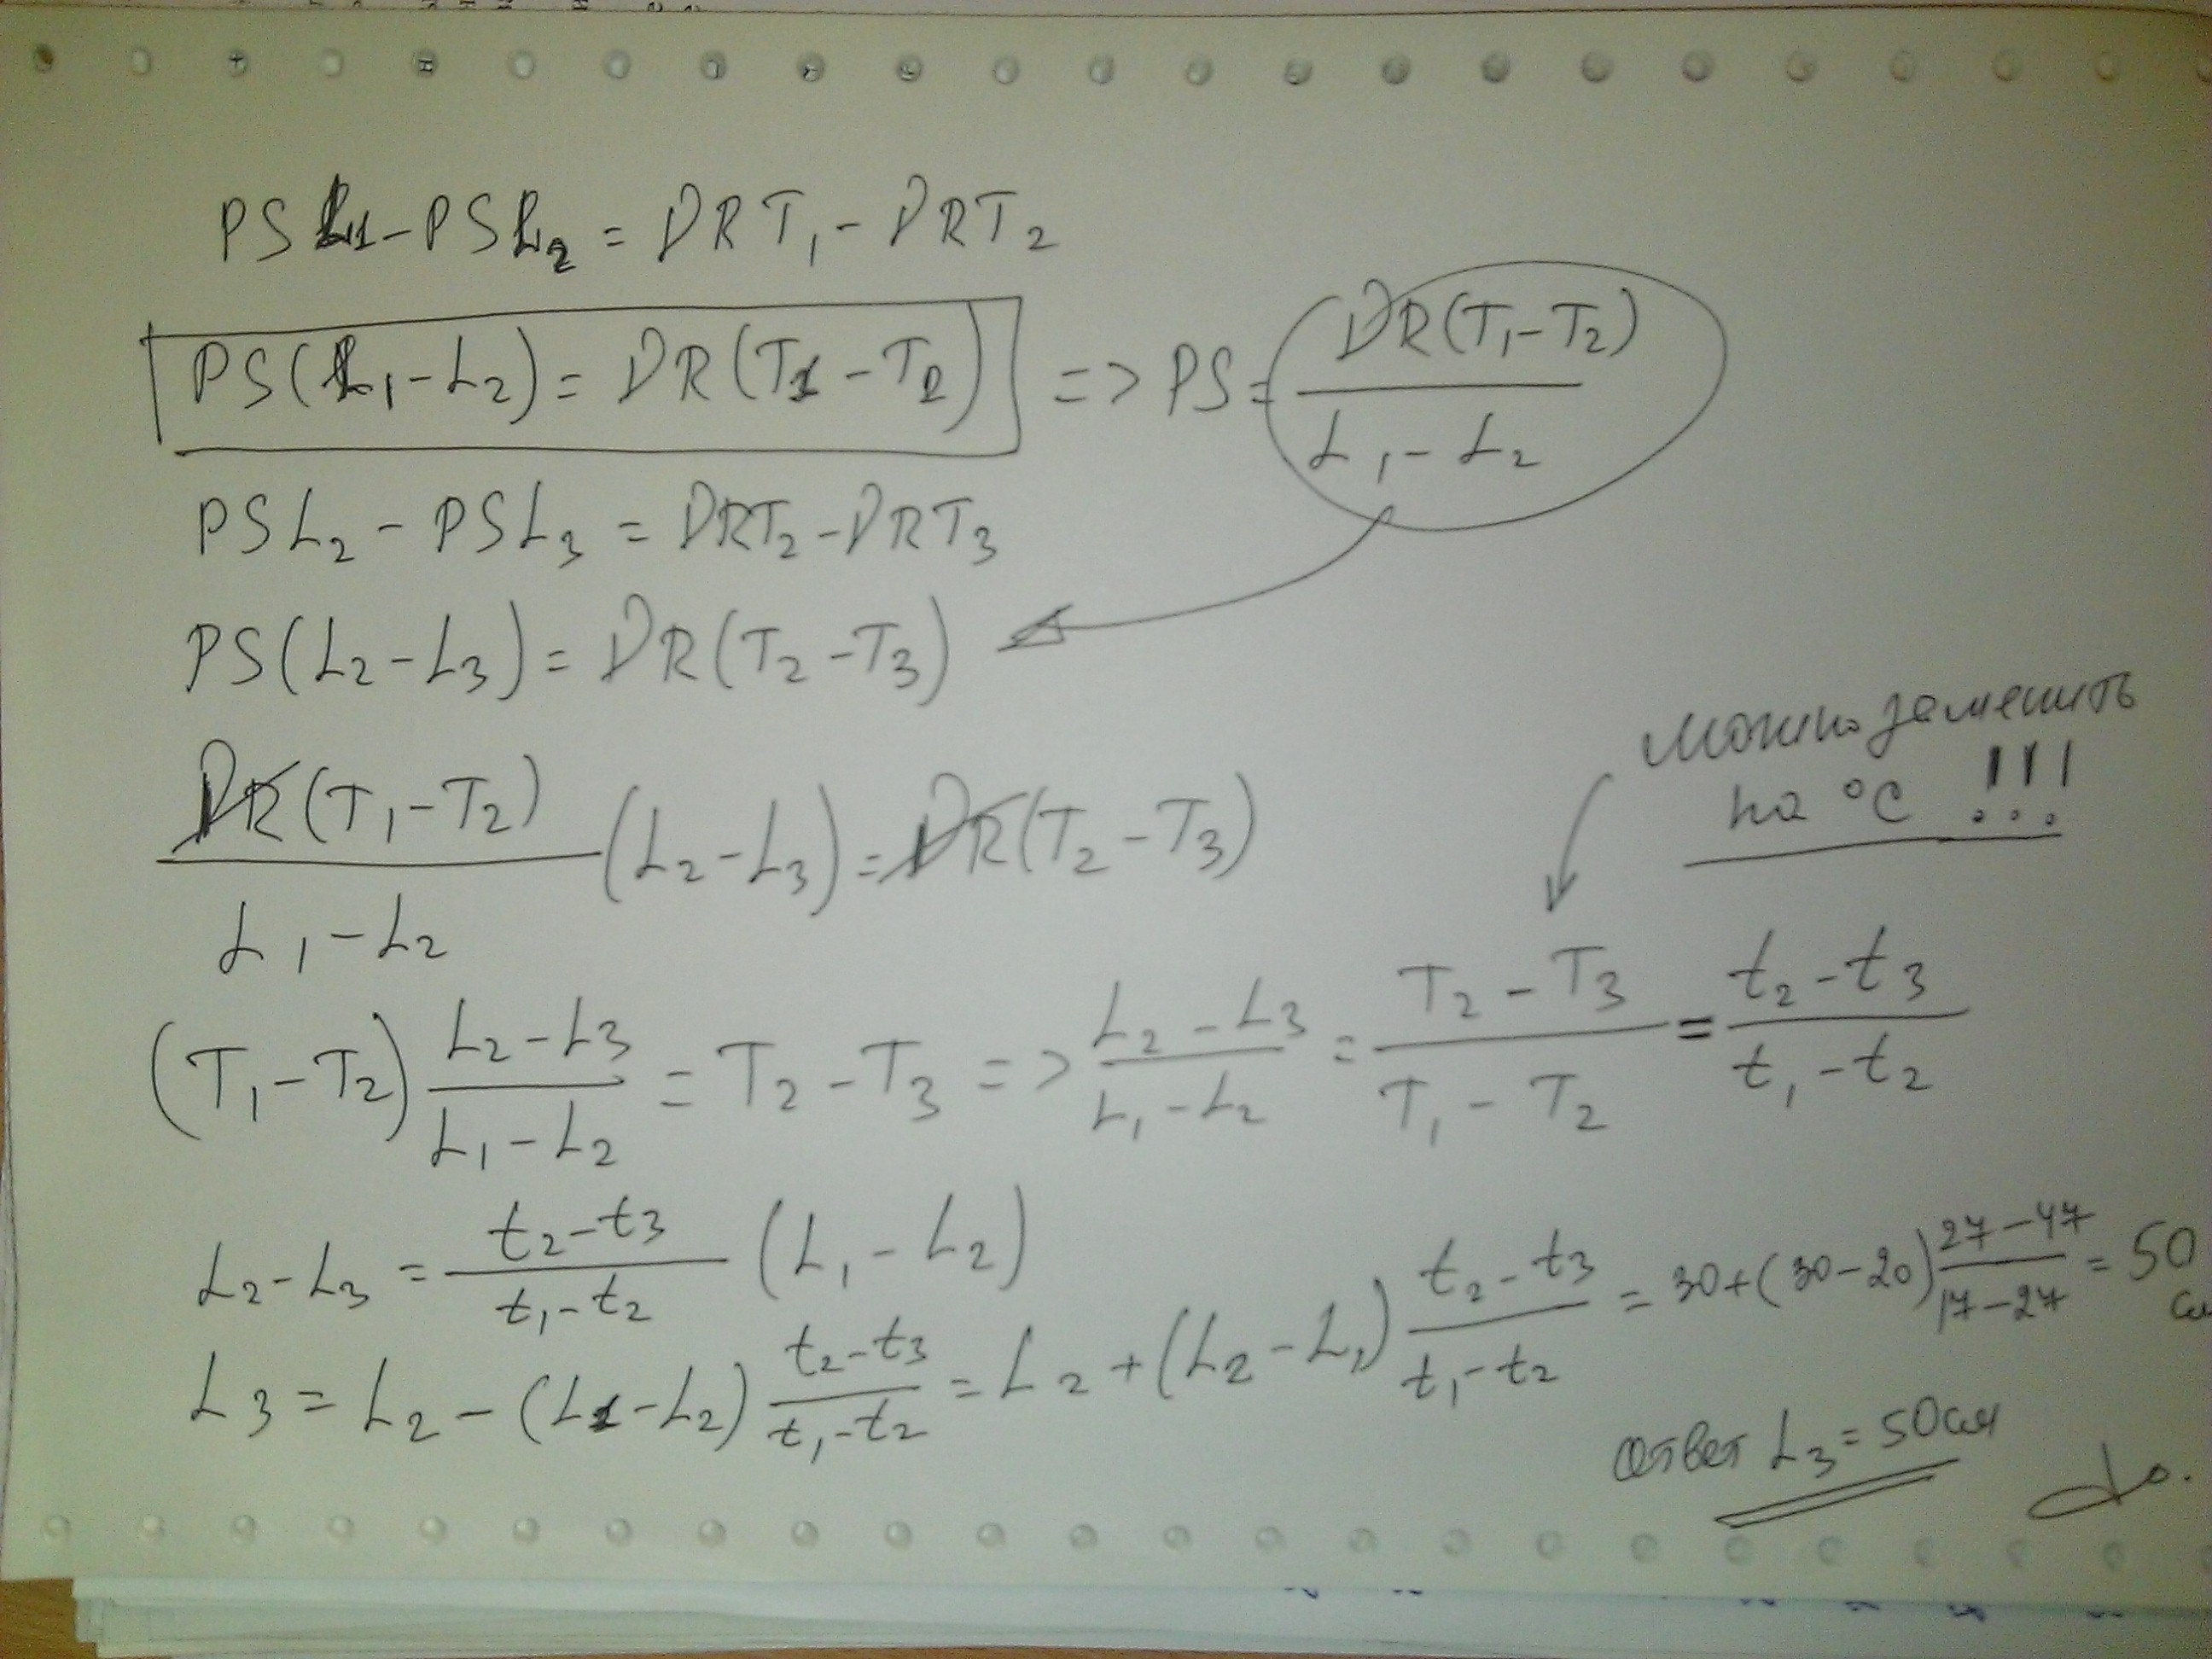 PSL₁ - PSL₂ = DRT₁ - DRT₂
PS(L₁ - L₂) = DR(T₁ - T₂) => PS = DR(T₁ - T₂) / L₁ - L₂
PSL₂ - PSL₃ = DRT₂ - DRT₃
PS(L₂ - L₃) = DR(T₂ - T₃)
можно заменить
на °C !!!
DR(T₁ - T₂) / L₁ - L₂ (L₂ - L₃) = DR(T₂ - T₃)
(T₁ - T₂) L₂ - L₃ / L₁ - L₂ = T₂ - T₃ => L₂ - L₃ / L₁ - L₂ = T₂ - T₃ / T₁ - T₂ = t₂ - t₃ / t₁ - t₂
L₂ - L₃ = t₂ - t₃ / t₁ - t₂ (L₁ - L₂)
L₃ = L₂ - (L₁ - L₂) t₂ - t₃ / t₁ - t₂ = L₂ + (L₂ - L₁) t₂ - t₃ / t₁ - t₂ = 30 + (30 - 20) 27 - 47 / 17 - 27 = 50 см
Ответ L₃ = 50см